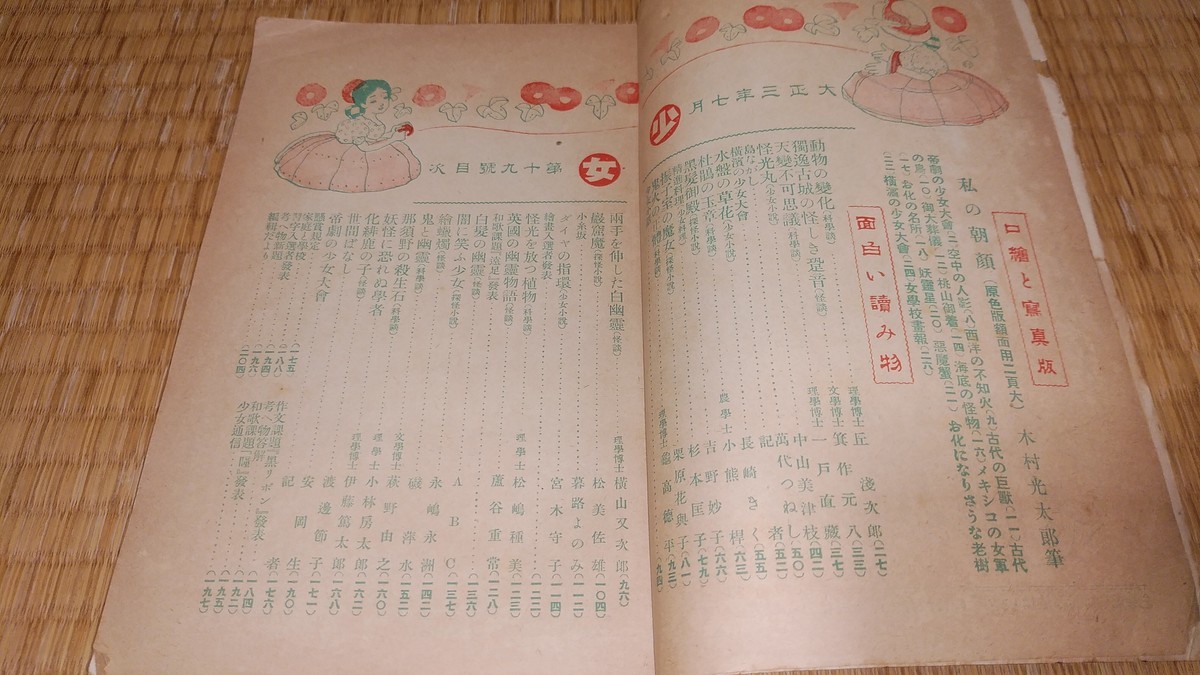 大正三年七月
少
口繪と寫真版
私の朝顏（原色版額面用二頁大）
木村光太郎筆
帝劇の少女大會（一）空中の人影（八）西洋の不知火（九）古代の巨獸（一一）古代
の鳥（一〇）御大葬儀（一二）桃山御着（一四）海底の怪物（一六）メキシコの女軍
（一七）お化の名所（一八）妖靈星（二〇）惡魔蟹（二一）お化になりさうな老樹
（二三）橫濱の少女大會（二四）女學校畫報（二六）
面白い讀み物
動物の變化（科學談）
理學博士 丘淺次郎（二七）
獨逸古城の怪しき跫音（怪談）
文學博士 箕作元八（三三）
天變不可思議（科學談）
理學博士 一戸直藏（三七）
怪光丸（少女小說）
中山美津枝（四二）
島ながし
萬代つねし（五〇）
橫濱の少女大會
記者（五二）
水盤の草花（少女小說）
長崎きく（五五）
杜鵑の玉章（科學談）
農學士 小熊桿
黑髮御殿（探怪小說）
吉野妙子（六六）
精進料理（少女料理）
杉本匡子（七九）
振子室の魔女（探怪小說）
栗原花與子（八一）
高德平（九三）
女
第十九號目次
兩手を伸した白幽靈（怪談）
理學博士 橫山又次郎（九六）
巖窟魔（探怪小說）
松美佐雄（一〇四）
小糸坂
暮路よのみ（一一二）
ダイヤの指環（少女小說）
宮木守子（一一四）
繪畫入選者發表
（一二二）
怪光を放つ植物（科學談）
理學士 松嶋種美（一二三）
英國の幽靈物語（怪談）
蘆谷重常（一二八）
和歌課題『遠足』發表
（一三六）
白髮の幽靈（怪談）
ABC（一三七）
闇に笑ふ少女（探怪小說）
永嶋永洲（一四二）
繪蠟燭（怪談）
磯萍水（一五二）
鬼と幽靈（科學談）
文學博士 萩野由之（一六〇）
那須野の殺生石（科學談）
理學士 小林房太郎（一六二）
妖怪に恐れぬ學者
理學博士 伊藤篤太郎（一六八）
化緋鹿の子（怪談）
渡邊節子（一七一）
世間ばなし
安岡生（一九〇）
帝劇の少女大會
記者（一七六）
懸賞規定
（一七五）
家庭と學校
（一八八）
（一九四）
考へ物新題
（一九六）
編輯だより
（二〇四）
作文課題『黑リボン』發表
（一八四）
考へ物答解
（一九二）
和歌課題『隱』發表
（一九五）
少女通信
（一九七）